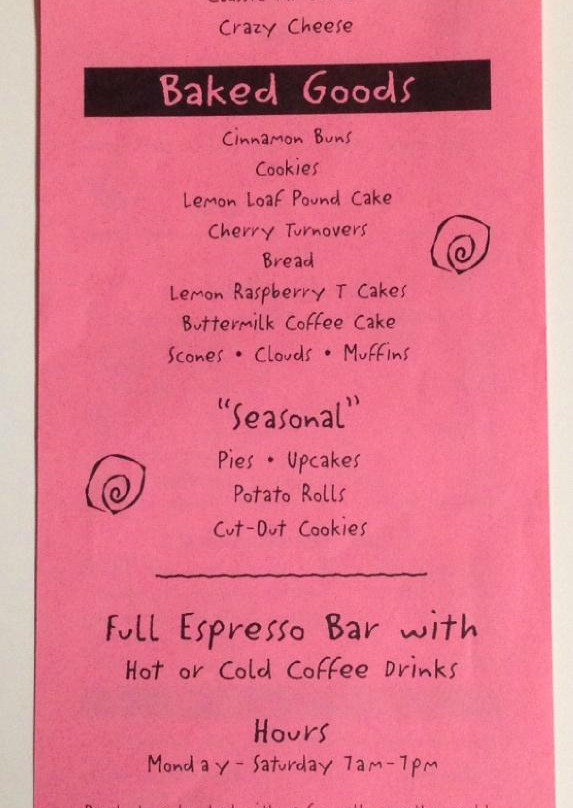 Crazy Cheese
Baked Goods
Cinnamon Buns
Cookies
Lemon Loaf Pound Cake
Cherry Turnovers
Bread
Lemon Raspberry T Cakes
Buttermilk Coffee Cake
Scones • Clouds • Muffins
"Seasonal"
Pies • Upcakes
Potato Rolls
Cut-Out Cookies
Full Espresso Bar with
Hot or Cold Coffee Drinks
Hours
Monday - Saturday 7am-7pm